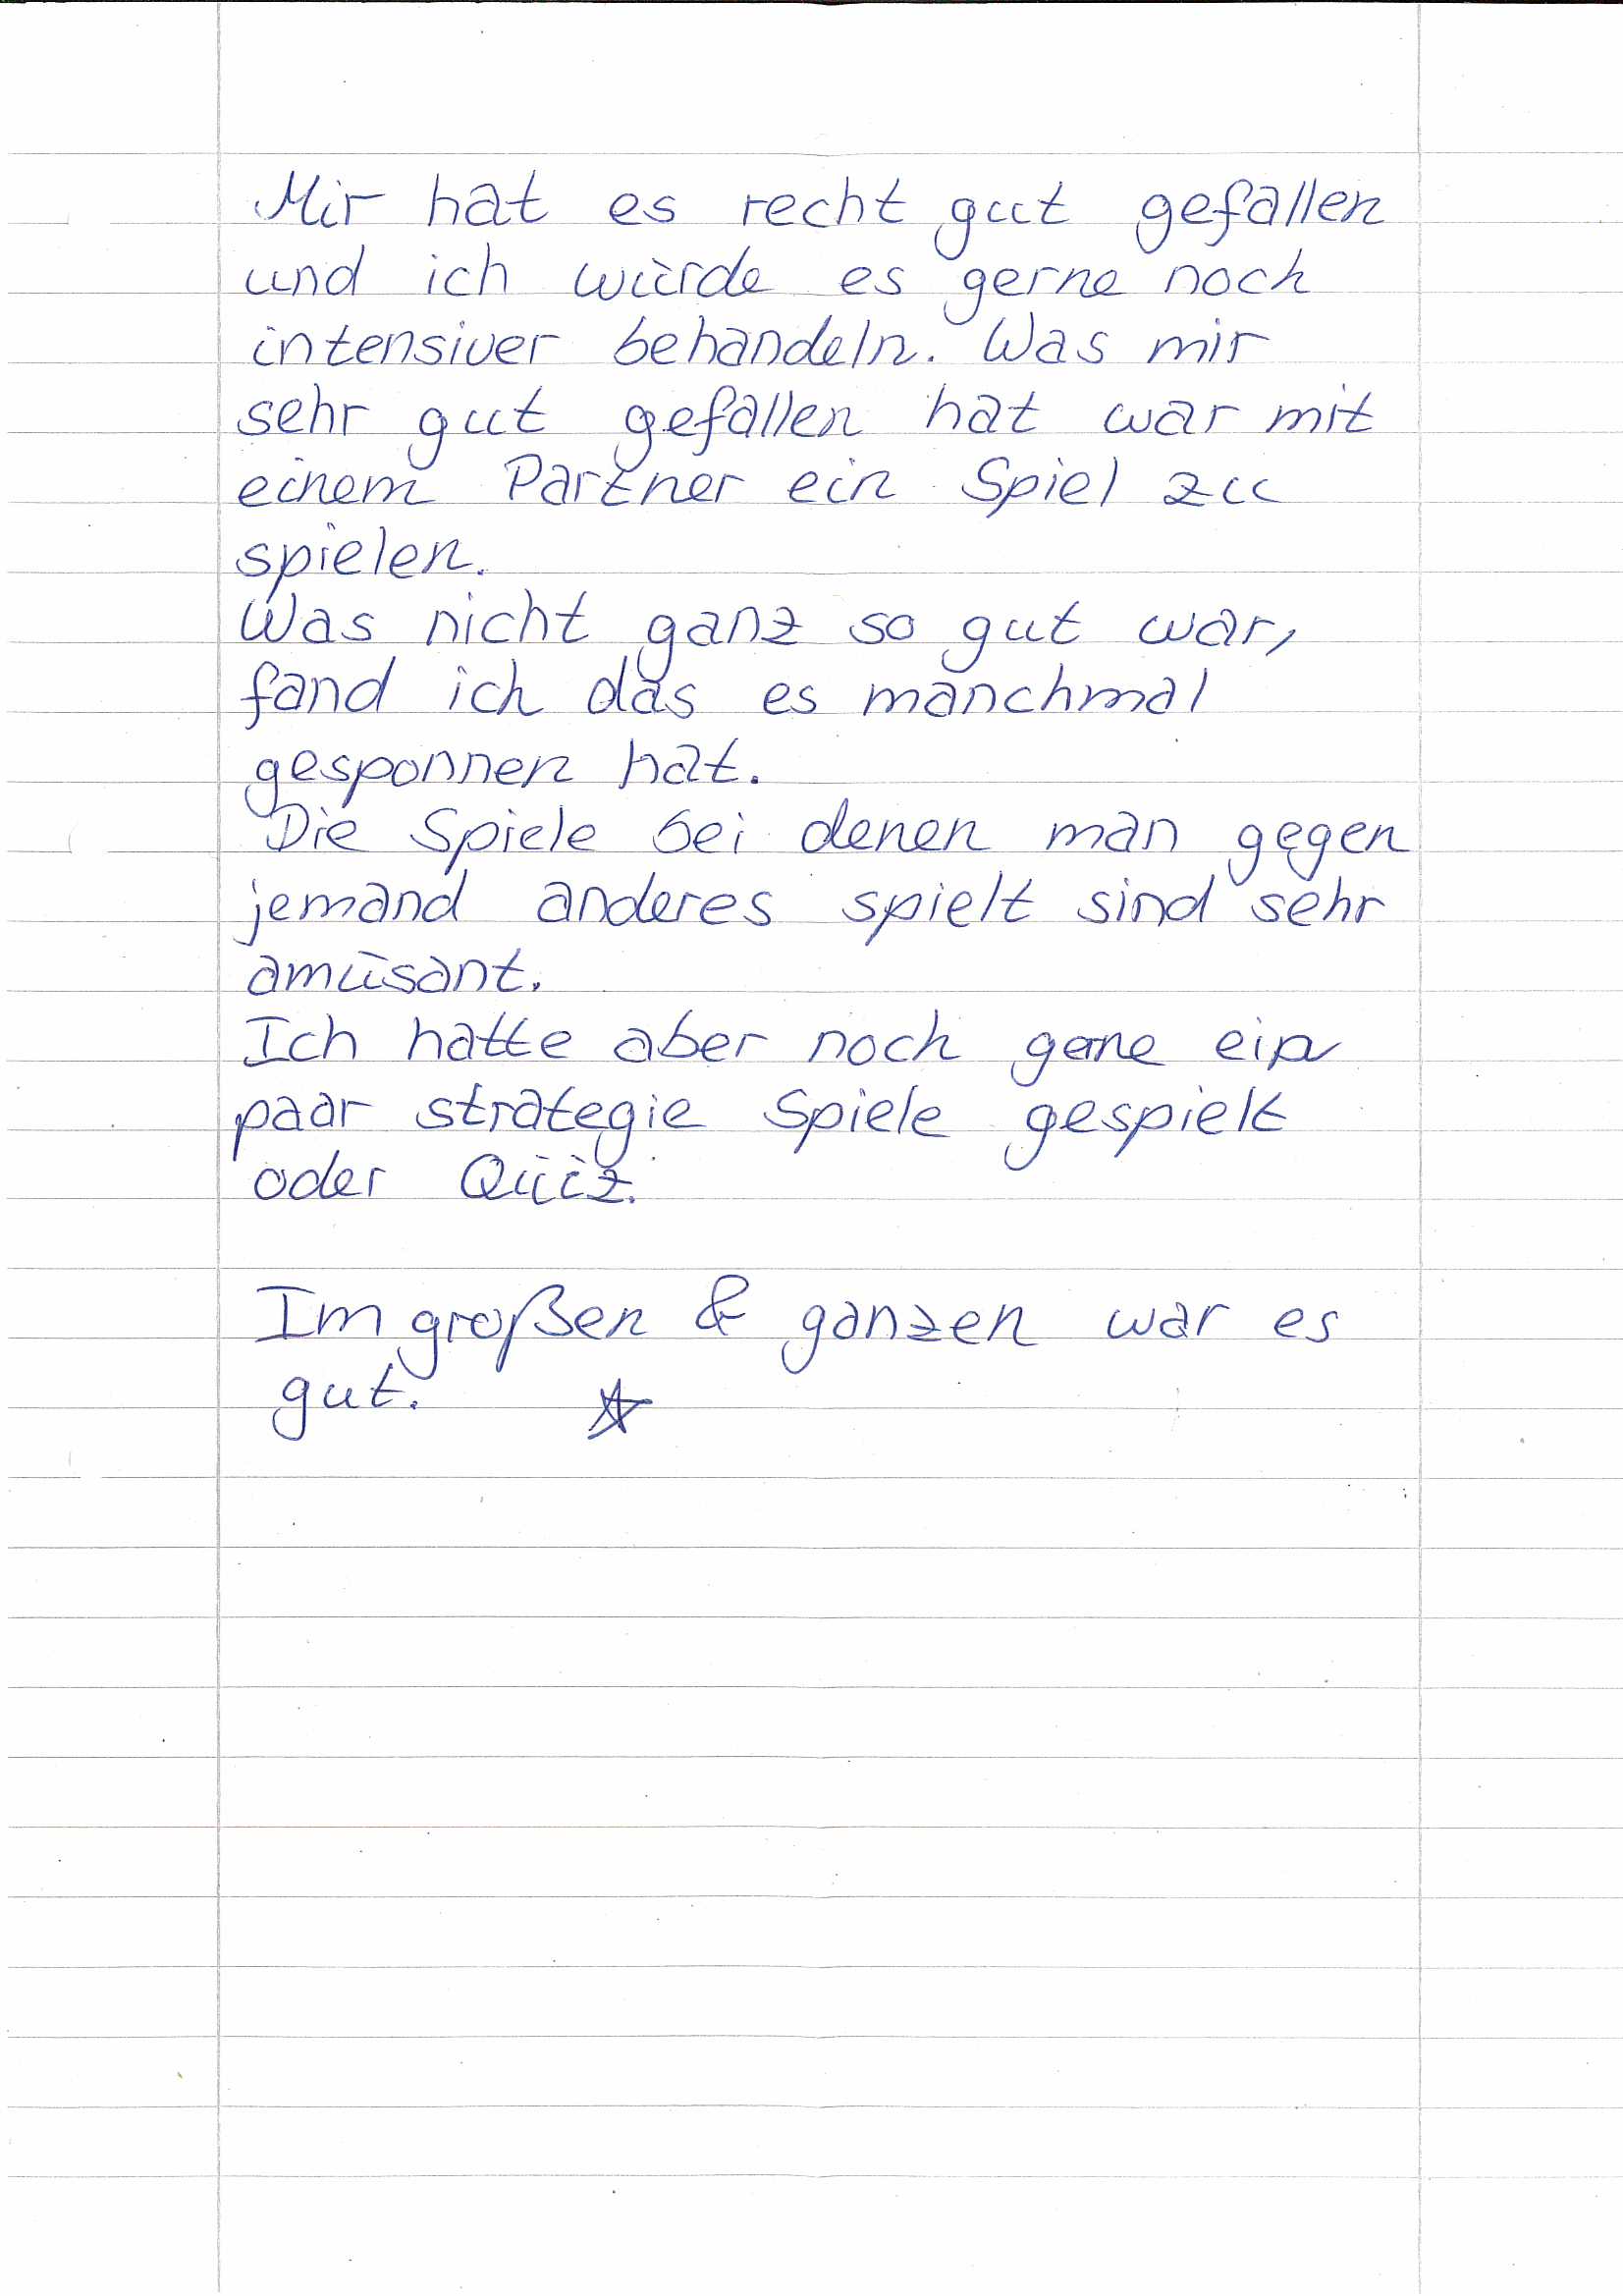 Mir hat es recht gut gefallen
und ich würde es gerne noch
intensiver behandeln. Was mir
sehr gut gefallen hat war mit
einem Partner ein Spiel zu
spielen.
Was nicht ganz so gut war,
fand ich das es manchmal
gesponnen hat.
Die Spiele bei denen man gegen
jemand anderes spielt sind sehr
amüsant.
Ich hatte aber noch gerne ein
paar strategie Spiele gespielt
oder Quiz.
Im großen & ganzen war es
gut.